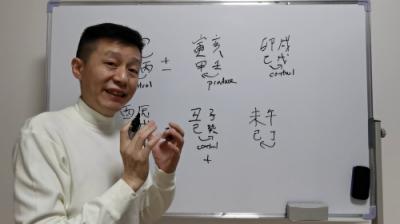 巳 寅亥 卯戌
丙 土 甲壬 乙戊
trol produce control
酉辰 丑子 未午
己癸 己丁
control
土